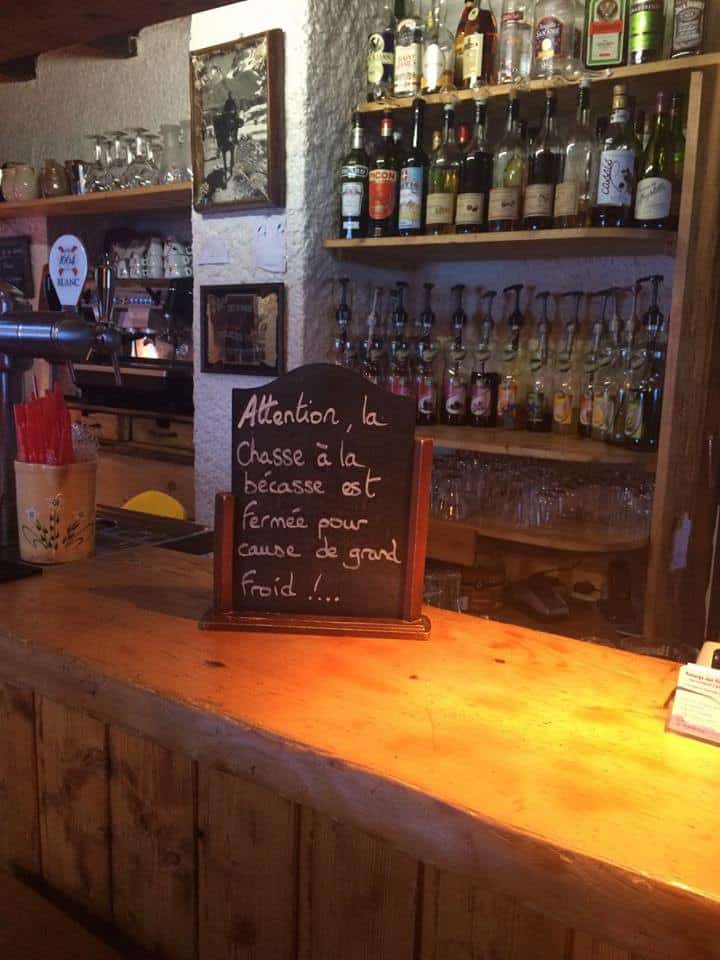 1664
BLANC
PICON
cassis
Attention, la
Chasse à la
bécasse est
fermée pour
cause de grand
froid !...